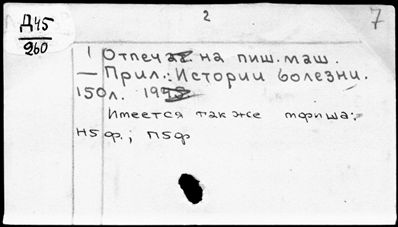 2
7
Д45
260
1 Отпечат. на пиш. маш.
— Прил.: Истории болезни.
150л.
Имеется также мфиша:
Н5ф.; П5ф